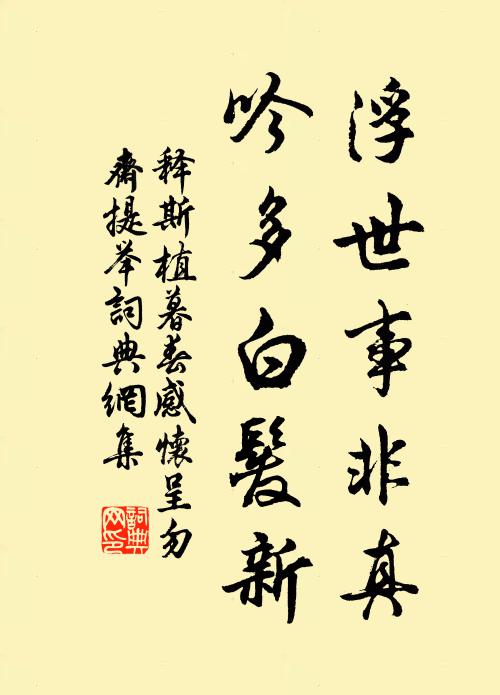 浮世事非真
吟多白髮新
释斯植暮春感懷呈勿
齋提举詞典網集
詞典网印